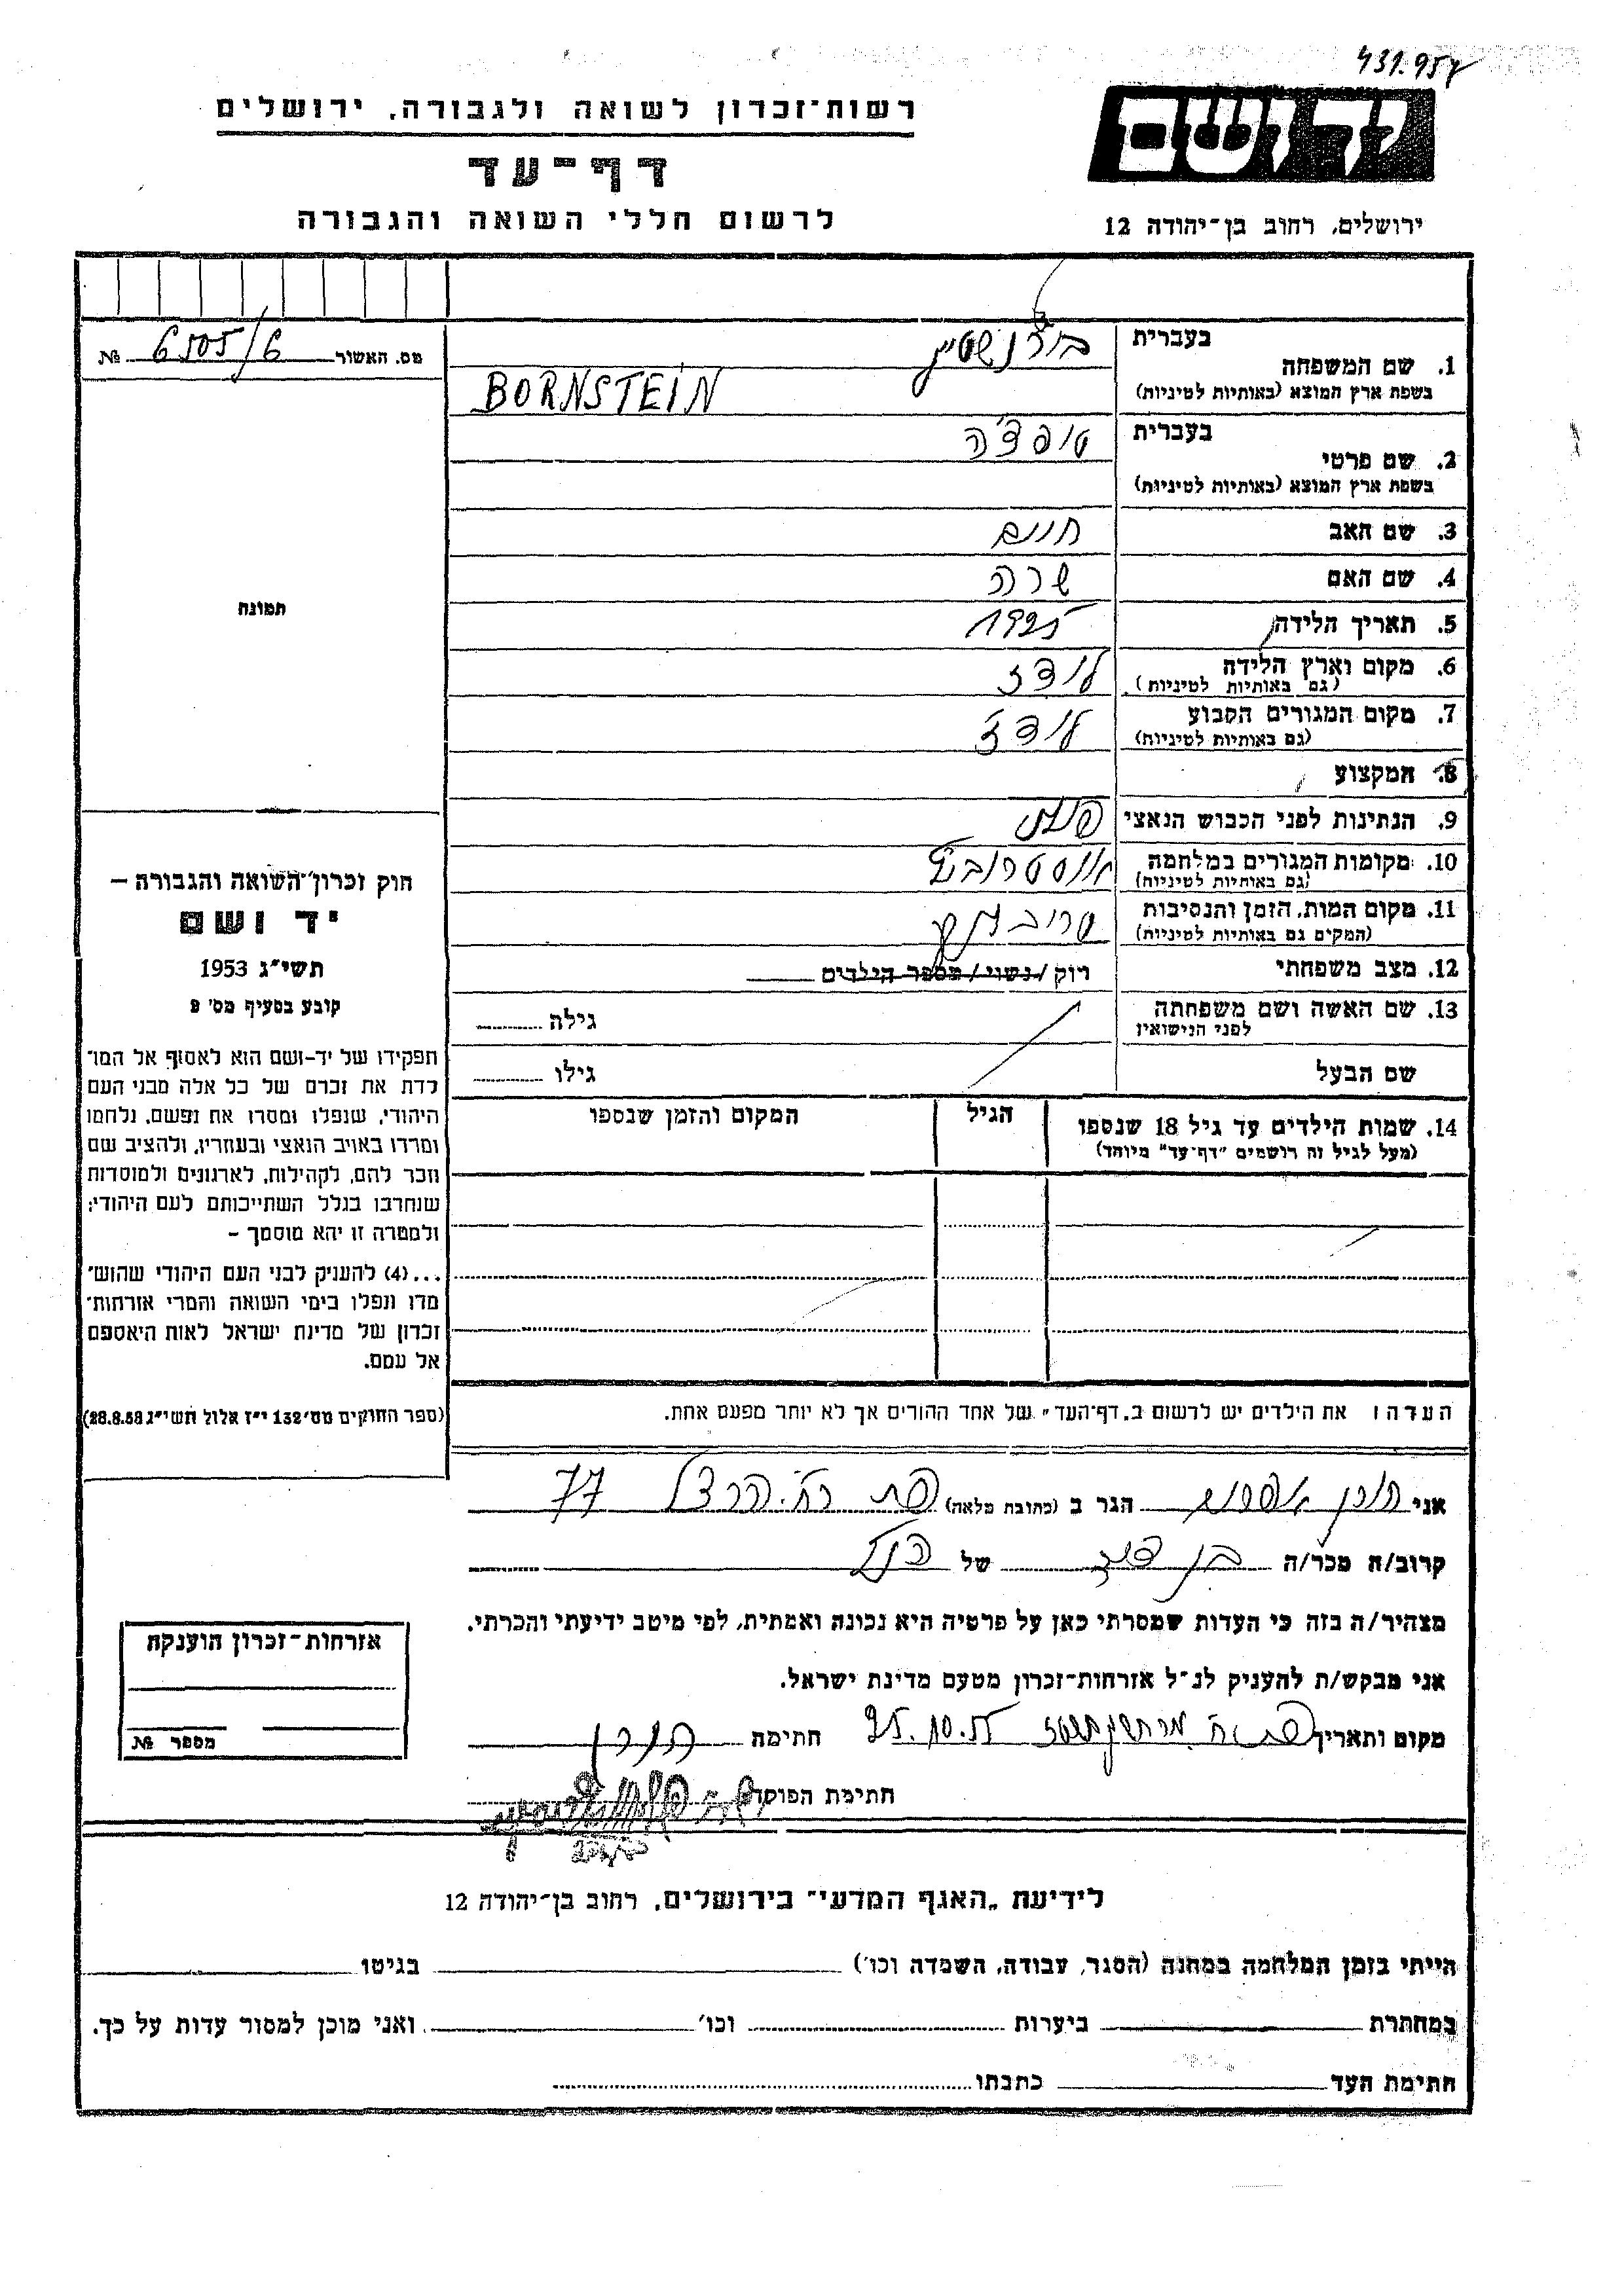 431.954
רשות־זכרון לשואה ולגבורה, ירושלים
יד ושם
דף־עד
לרשום חללי השואה והגבורה
ירושלים, רחוב בן־יהודה 12
מס. האשור 6505/6 №
1. שם המשפחה
בעברית בורנשטיין
בשפת ארץ המוצא (באותיות לטיניות) BORNSTEIN
2. שם פרטי
בעברית
בשפת ארץ המוצא (באותיות לטיניות)
3. שם האב חיים
4. שם האם שרה
5. תאריך הלידה 1925
6. מקום וארץ הלידה לודז
(גם באותיות לטיניות)
7. מקום המגורים הקבוע לודז'
(גם באותיות לטיניות)
8. המקצוע
9. הנתינות לפני הכבוש הנאצי פולני
10. מקומות המגורים במלחמה
(גם באותיות לטיניות)
11. מקום המות, הזמן והנסיבות
(המקום גם באותיות לטיניות)
12. מצב משפחתי רוק / נשוי / מספר הילדים
13. שם האשה ושם משפחתה
לפני הנישואין
גילה
שם הבעל
גילו
14. שמות הילדים עד גיל 18 שנספו
(מעל לגיל זה רושמים "דף־עד" מיוחד)
הגיל
המקום והזמן שנספו
תמונה
חוק זכרון השואה והגבורה –
יד ושם
תשי"ג 1953
קובע בסעיף מס' 2
תפקידו של יד-ושם הוא לאסוף אל המו־
לדת את זכרם של כל אלה מבני העם
היהודי, שנפלו ומסרו את נפשם, נלחמו
ומרדו באויב הנאצי ובעוזריו, ולהציב שם
וזכר להם, לקהילות, לארגונים ולמוסדות
שנחרבו בגלל השתייכותם לעם היהודי;
ולמטרה זו יהא מוסמך –
...(4) להעניק לבני העם היהודי שהוש־
מדו ונפלו בימי השואה והמרי אזרחות־
זכרון של מדינת ישראל לאות היאספם
אל עמם.
(ספר החוקים מס' 132 י"ז אלול תשי"ג 28.8.53)
העדהו את הילדים יש לרשום ב„דף־העד" של אחד ההורים אך לא יותר מפעם אחת.
אני הגר ב (כתובת מלאה) פת רח. הרצל 77
קרוב/ה מכר/ה בן דוד של הנ"ל
מצהיר/ה בזה כי העדות שמסרתי כאן על פרטיה היא נכונה ואמתית, לפי מיטב ידיעתי והכרתי.
אני מבקש/ת להעניק לנ"ל אזרחות־זכרון מטעם מדינת ישראל.
מקום ותאריך 25.10.55 חתימה
חתימת הפוקד
אזרחות־זכרון הוענקה
מספר №
לידיעת „האגף המדעי" בירושלים, רחוב בן־יהודה 12
הייתי בזמן המלחמה במחנה (הסגר, עבודה, השמדה וכו') בגיטו
במחתרת ביערות וכו' ואני מוכן למסור עדות על כך.
חתימת העד כתבתו